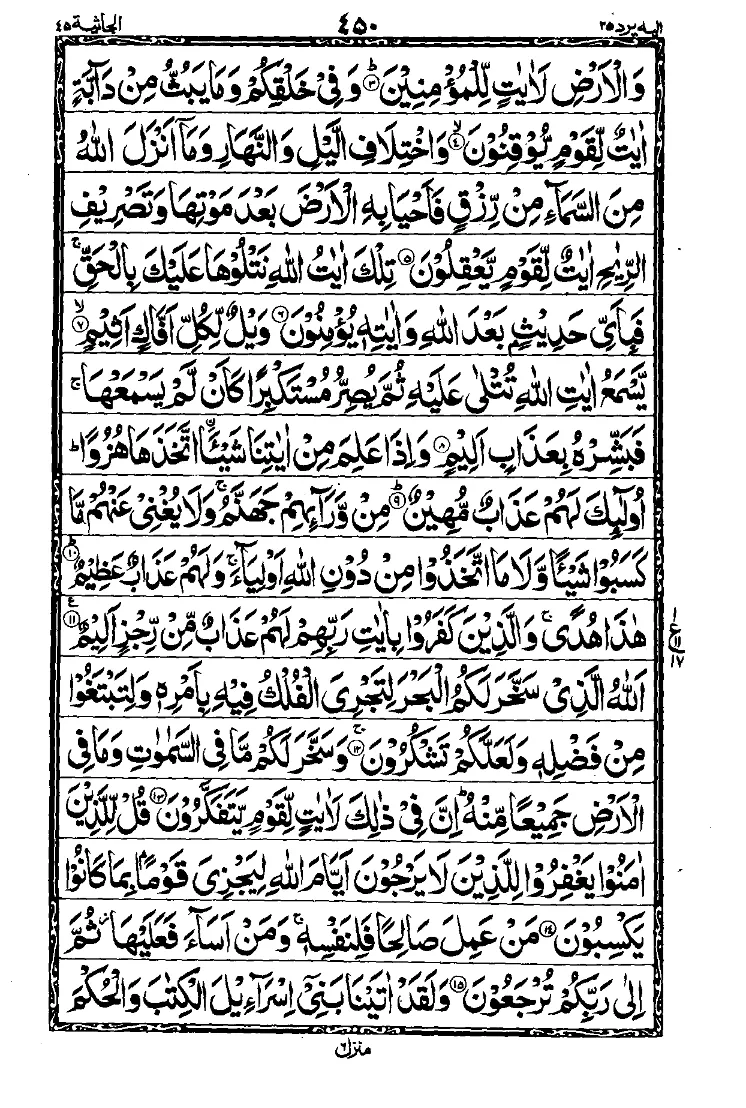 الیه یرد ۲۵ ۴۵۰ الجاثیة ۴۵
وَالْاَرْضِ لَاٰیٰتٍ لِّلْمُؤْمِنِیْنَ ﴿۳﴾ؕ وَفِیْ خَلْقِكُمْ وَمَا یَبُثُّ مِنْ دَآبَّةٍ
اٰیٰتٌ لِّقَوْمٍ یُّوْقِنُوْنَ ﴿۴﴾ۙ وَاخْتِلَافِ الَّیْلِ وَالنَّهَارِ وَمَاۤ اَنْزَلَ اللّٰهُ
مِنَ السَّمَآءِ مِنْ رِّزْقٍ فَاَحْیَا بِهِ الْاَرْضَ بَعْدَ مَوْتِهَا وَتَصْرِیْفِ
الرِّیٰحِ اٰیٰتٌ لِّقَوْمٍ یَّعْقِلُوْنَ ﴿۵﴾ تِلْكَ اٰیٰتُ اللّٰهِ نَتْلُوْهَا عَلَیْكَ بِالْحَقِّ ۚ
فَبِاَیِّ حَدِیْثٍۭ بَعْدَ اللّٰهِ وَاٰیٰتِهٖ یُؤْمِنُوْنَ ﴿۶﴾ وَیْلٌ لِّكُلِّ اَفَّاكٍ اَثِیْمٍ ﴿۷﴾ۙ
یَّسْمَعُ اٰیٰتِ اللّٰهِ تُتْلٰی عَلَیْهِ ثُمَّ یُصِرُّ مُسْتَكْبِرًا كَاَنْ لَّمْ یَسْمَعْهَا ۚ
فَبَشِّرْهُ بِعَذَابٍ اَلِیْمٍ ﴿۸﴾ وَاِذَا عَلِمَ مِنْ اٰیٰتِنَا شَیْـًٔا اتَّخَذَهَا هُزُوًا ؕ
اُولٰٓئِكَ لَهُمْ عَذَابٌ مُّهِیْنٌ ﴿۹﴾ؕ مِنْ وَّرَآئِهِمْ جَهَنَّمُ ۚ وَلَا یُغْنِیْ عَنْهُمْ مَّا
كَسَبُوْا شَیْـًٔا وَّلَا مَا اتَّخَذُوْا مِنْ دُوْنِ اللّٰهِ اَوْلِیَآءَ ۚ وَلَهُمْ عَذَابٌ عَظِیْمٌ ﴿۱۰﴾ؕ
هٰذَا هُدًی ۚ وَالَّذِیْنَ كَفَرُوْا بِاٰیٰتِ رَبِّهِمْ لَهُمْ عَذَابٌ مِّنْ رِّجْزٍ اَلِیْمٌ ﴿۱۱﴾ع
۱ ع ۱۱ ۱۷
اَللّٰهُ الَّذِیْ سَخَّرَ لَكُمُ الْبَحْرَ لِتَجْرِیَ الْفُلْكُ فِیْهِ بِاَمْرِهٖ وَلِتَبْتَغُوْا
مِنْ فَضْلِهٖ وَلَعَلَّكُمْ تَشْكُرُوْنَ ﴿۱۲﴾ۚ وَسَخَّرَ لَكُمْ مَّا فِی السَّمٰوٰتِ وَمَا فِی
الْاَرْضِ جَمِیْعًا مِّنْهُ ؕ اِنَّ فِیْ ذٰلِكَ لَاٰیٰتٍ لِّقَوْمٍ یَّتَفَكَّرُوْنَ ﴿۱۳﴾ قُلْ لِّلَّذِیْنَ
اٰمَنُوْا یَغْفِرُوْا لِلَّذِیْنَ لَا یَرْجُوْنَ اَیَّامَ اللّٰهِ لِیَجْزِیَ قَوْمًۢا بِمَا كَانُوْا
یَكْسِبُوْنَ ﴿۱۴﴾ مَنْ عَمِلَ صَالِحًا فَلِنَفْسِهٖ ۚ وَمَنْ اَسَآءَ فَعَلَیْهَا ؗ ثُمَّ
اِلٰی رَبِّكُمْ تُرْجَعُوْنَ ﴿۱۵﴾ وَلَقَدْ اٰتَیْنَا بَنِیْۤ اِسْرَآءِیْلَ الْكِتٰبَ وَالْحُكْمَ
منزل ۶